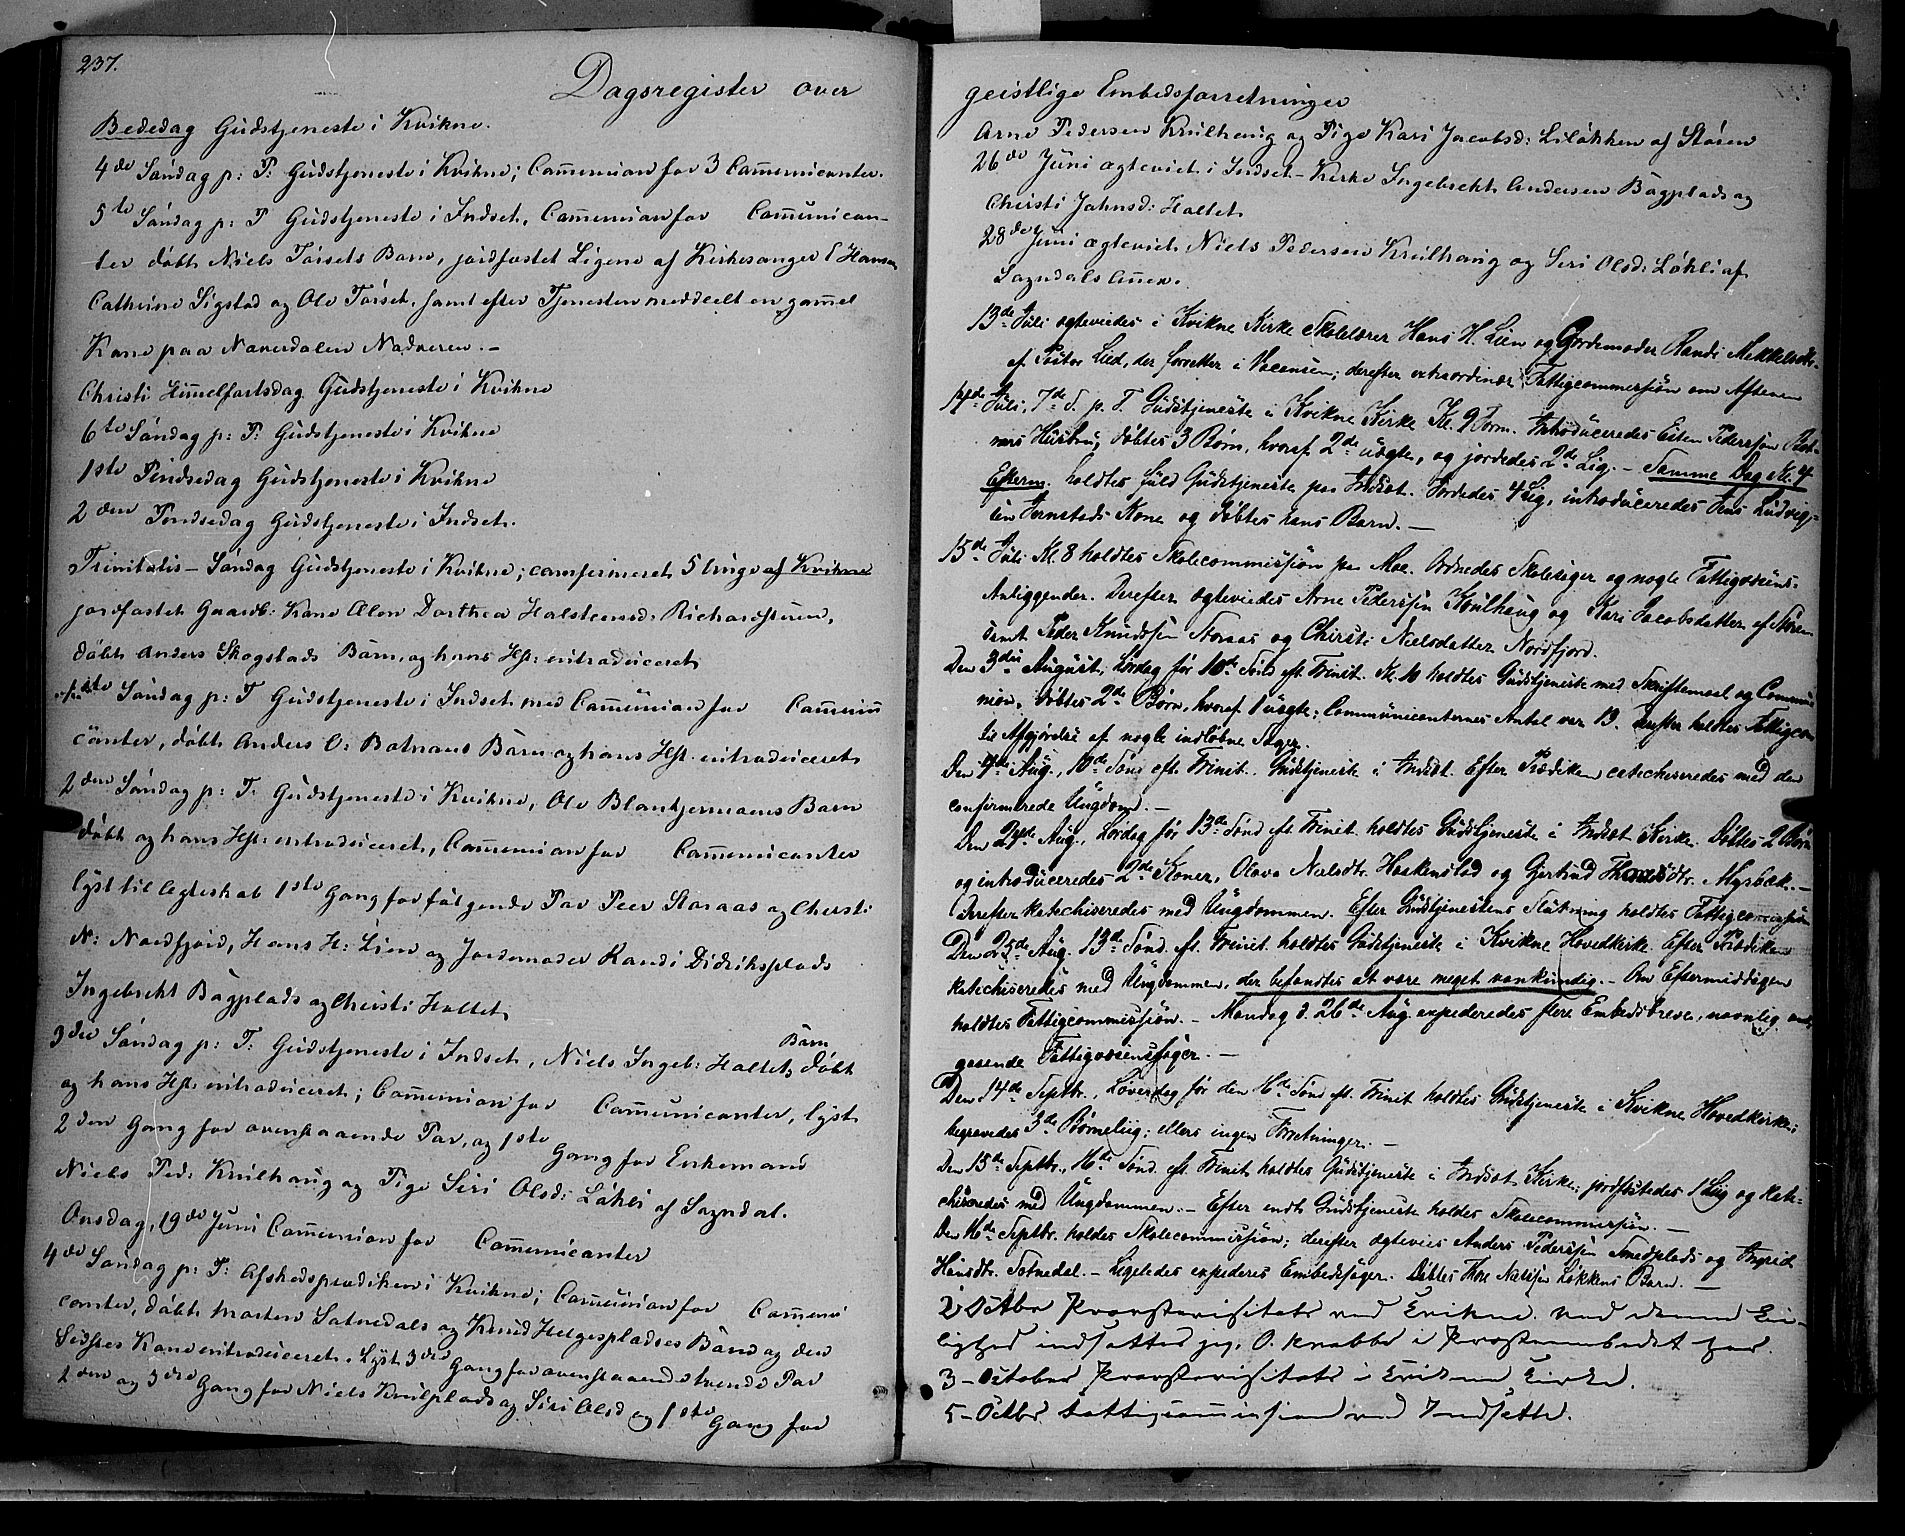 237.
Dagsregister over
Bededag Gudstjeneste i Kvikne.
4de Søndag p: P: Gudstjeneste i Kvikne; Communion for 3 Communicanter.
5te Søndag p: P Gudstjeneste i Indset, Communion for Communican-
ter døbt Niels Torsets Barn, jordfæstet Ligene af Kirkesanger Hansen
Cathrine Sigstad og Ole Torset, samt efter Tjenesten meddeelt en gammel
Kone paa Naverdalen Nadveren.-
Christi Himmelfartsdag Gudstjeneste i Kvikne
6te Søndag p: P: Gudstjeneste i Kvikne
1ste Pindsedag Gudstjeneste i Kvikne
2den Pindsedag Gudstjeneste i Indset.
Trinitatis-Søndag Gudstjeneste i Kvikne; confirmeret 5 Unge af Kvikne
jordfæstet Gaardb: Kone Dorthea Halsteensd: Richardstuen,
døbt Anders Skogstads Barn, og hans Hst: introduceret
1ste Søndag p: T Gudstjeneste i Indset med Communion for Communi
canter, døbt Anders O: Botnans Barn og hans Hst. introduceret
2den Søndag p: T: Gudstjeneste i Kvikne, Ole Barn
døbt og hans Hst: introduceret, Communion for Communicanter
lyst til Ægteskab 1ste Gang for følgende Par Peer Storaas og Christi
N: Nordfjord, Hans H: Lien og Jordemoder Randi Didriksplads
Ingebrekt Bagplads og Christi Haltet,
3die Søndag p: T: Gudstjeneste i Indset, Niels Ingeb: Haltets Barn døbt
og hans Hst: introduceret; Communion for Communicanter, lyst
2den Gang for ovenstaaende Par, og 1ste Gang for Enkemand
Niels Ped: Krulhaug og Pige Siri Olsd: Løkli af Sogndal.
Onsdag, 19de Juni Communion for Communicanter
4de Søndag p: T: Afskedsprædiken i Kvikne; Communion for Communi
canter, døbt Morten Satnedals og Knud Helgespladses Børn og den
Sidstes Kone introduceret. Lyst 3die Gang for ovenstaaende trende Par
2den og 3die Gang for Niels og Siri Olsd og 1ste Gang for
geistlige Embedsforretninger
Arne Pedersen Krulhaug og Pige Kari Jacobsd: Liløkken af Støren
26de Juni ægteviet i Indset-Kirke Ingebrekt Andersen Bagplads og
Christi Johnsd: Haltet
28de Juni ægteviet Niels Pedersen Krulhaug og Siri Olsd: Løkli af
13de Juli ægteviedes i Kvikne Kirke Skolelærer Hans H. Lien og Gjordemoder Randi
af Pastor Lied, der forretter i Vacansen; derefter extraordinær Fattigcommission om Aftenen
14de Juli, 7de S. p. T. Gudstjeneste i Kvikne Kirke Kl. 9 Form. Introduceredes Esten Pederssøn
Hustru, døbtes 3 Børn, hvoraf 2de uægte, og jordedes 2de Lig.- Samme Dag Kl. 4
Efterm. holdtes fuld Gudstjeneste paa Indset. Jordedes 4 Lig, introduceredes Jens Ludvig-
sen Kone og døbtes hans Barn.-
15de Juli Kl. 8 holdtes Skolecommission paa Moe. Ordnedes Skolesager og nogle Fattigvæsens-
Anliggender. Derefter ægteviedes Arne Pederssøn Krulhaug og Kari Jacobsdatter af Støren
samt Peder Knudssøn Storaas og Christi Nielsdatter Nordfjord.
Den 3die August, Lørdag før 10de Sønd eft. Trinit. Kl. 10 holdtes Gudstjeneste med Skriftemaal og Commu-
nion, døbtes 2de Børn, hvoraf 1 uægte; Communicanternes Antal var 13. Derefter holdtes Fattigcom
til Afgjørelse af nogle indløbne Sager.
Den 4de Aug., 10de Sønd eft. Trinit. Gudstjeneste i Indset. Efter Prædiken catechiseredes med den
confirmerede Ungdom.-
Den 24de Aug., Lørdag før 13de Sønd eft. Trinit. holdtes Gudstjeneste i Indset Kirke. Døbtes 2 Børn
og introduceredes 2de Koner, Olava Nielsdtr. Haakenstad og Gjertrud Myrbæk.-
Derefter katechiseredes med Ungdommen. Efter Gudstjenestens Slutning holdtes Fattigcommission
Den 25de Aug. 13de Sønd. eft. Trinit. holdtes Gudstjeneste i Kvikne Hovedkirke. Efter Prædiken
katechiseredes med Ungdommen, der befandtes at være meget vankundig.- Om Eftermiddagen
holdtes Fattigcommission.- Mandag d. 26de Aug. expederedes flere Embedsbreve, navnlig an-
gaaende Fattigvæsenssager.-
Den 14de Septbr., Løverdag før den 16de Sønd. eft. Trinit holdtes Gudstjeneste i Kvikne Hovedkirke;
begravedes 3de Børnelig; ellers ingen Forretninger.-
Den 15de Septbr., 16de Sønd. eft. Trinit holdtes Gudstjeneste i Indset Kirke; jordfæstedes 1 Lig og kate-
chiseredes med Ungdommen.- Efter endt Gudstjeneste holdes Skolecommission.-
Den 16de Septbr. holdes Skolecommission; derefter ægtevies Anders Pederssøn Smedplads og Ingrid
Hansdtr. Satnedal.- Ligeledes expederes Embedssager. Døbtes Løkkens Barn.-
2 Octbr Provstevisitats ved Kvikne. Ved denne Lei-
lighed indsættes jeg, O. Krabbe i Præsteembedet her.
3- October Provstevisitats i Kvikne Kirke.
5- Octbr Fattigcommission ved Indsette.